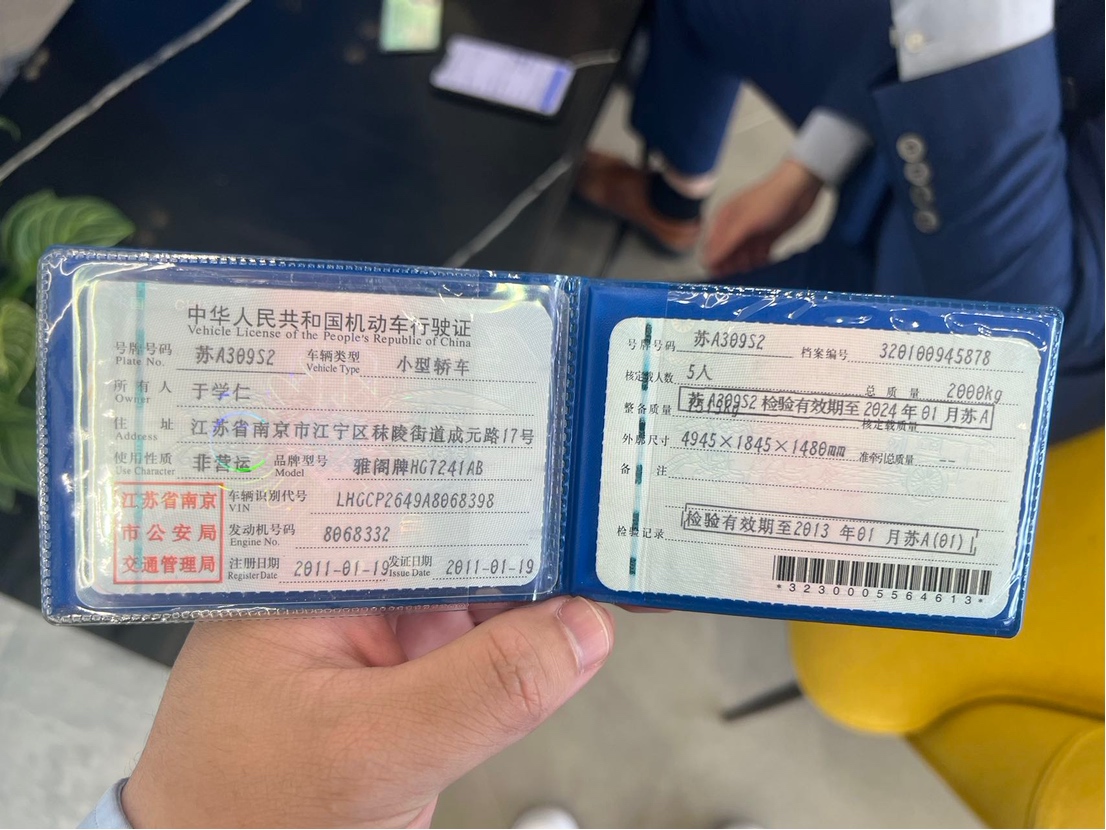 中华人民共和国机动车行驶证
Vehicle License of the People's Republic of China
号牌号码 苏A309S2 车辆类型 小型轿车
Plate No. Vehicle Type
所有人 于学仁
Owner
住址 江苏省南京市江宁区秣陵街道成元路17号
Address
使用性质 非营运 品牌型号 雅阁牌HG7241AB
Use Character Model
江苏省南京
市公安局
交通管理局
车辆识别代号 LHGCP2649A8068398
VIN
发动机号码 8068332
Engine No.
注册日期 2011-01-19 发证日期 2011-01-19
Register Date Issue Date
号牌号码 苏A309S2 档案编号 320100945878
核定载人数 5人 总质量 2000kg
整备质量 苏A309S2 检验有效期至 2024年01月苏A
核定载质量
外廓尺寸 4945×1845×1480mm 准牵引总质量 --
备注
检验记录 检验有效期至2013年01月苏A(01)
*3230005564613*